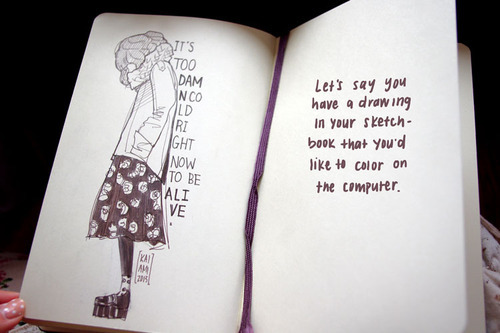 IT'S
TOO
DAM
N CO
LD
RI
GHT
NOW
TO BE
ALI
VE
.
[KAI
AMI
2015]
Let's say you
have a drawing
in your sketch-
book that you'd
like to color on
the computer.